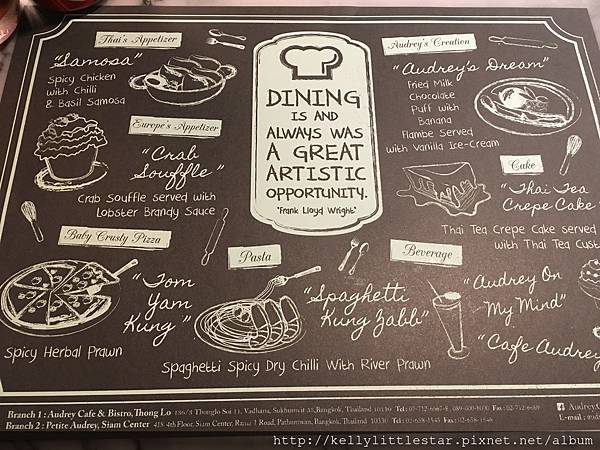 Thai's Appetizer
"Samosa"
Spicy Chicken
with Chilli
& Basil Samosa
Europe's Appetizer
"Crab
Souffle"
Crab Souffle Served with
Lobster Brandy Sauce
Baby Crusty Pizza
"Tom
Yam
Kung"
Spicy Herbal Prawn
DINING
IS AND
ALWAYS WAS
A GREAT
ARTISTIC
OPPORTUNITY.
"Frank Lloyd Wright"
Pasta
"Spaghetti
Kung Zabb"
Spaghetti Spicy Dry Chilli With River Prawn
Audrey's Creation
"Audrey's Dream"
Fried Milk
Chocolate
Puff with
Banana
Flambe Served
with Vanilla Ice-Cream
Cake
"Thai Tea
Crepe Cake"
Thai Tea Crepe Cake Served
with Thai Tea Cust
Beverage
"Audrey On
My Mind"
"Cafe Audrey
Branch 1 : Audrey Cafe & Bistro, Thong Lo 136/3 Thonglo Soi 11, Vadhana, Sukhumvit 55, Bangkok, Thailand 10110 Tel : 02-712-6667-8, 089-000-8000 Fax : 02-712-6669
Branch 2 : Petite Audrey, Siam Center 418 4th Floor, Siam Center, Rama 1 Road, Pathumwan, Bangkok, Thailand 10330 Tel : 02-658-1545 Fax : 02-658-1546
Audrey.C
E-mail :
http://kellylittlestar.pixnet.net/album